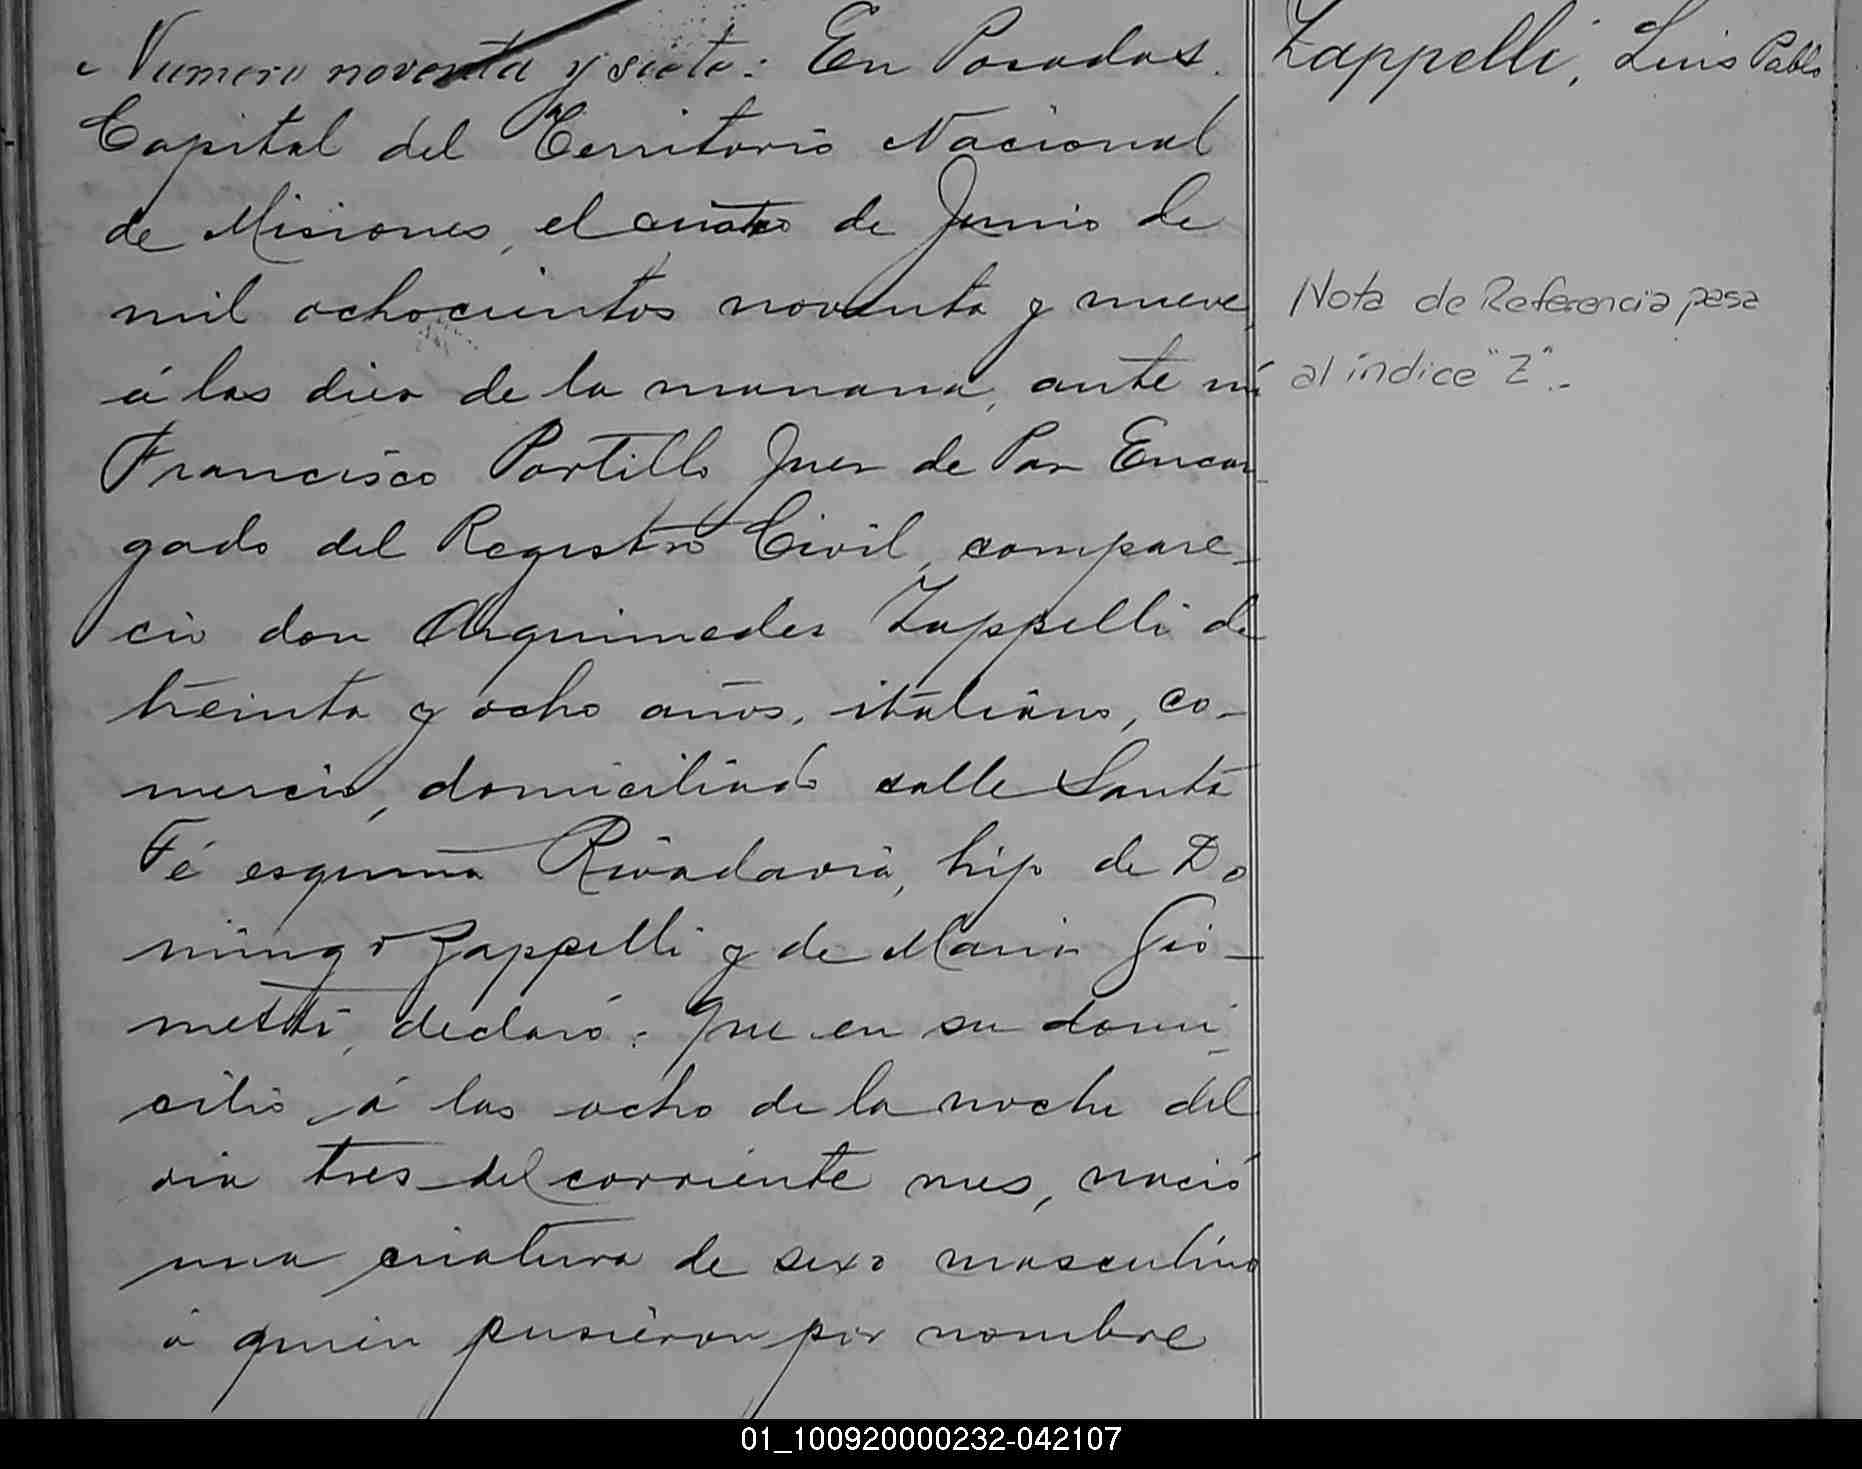 Numero noventa y siete: En Posadas.
Capital del Territorio Nacional
de Misiones, el cuatro de Junio de
mil ochocientos noventa y nueve,
á las diez de la manana, ante mi
Francisco Portillo Juez de Paz Encar_
gado del Registro Civil, compare_
cio don Arquimedes Zappelli de
treinta y ocho años, italiano, co_
mercio, domiciliado calle Santa
Fé esquina Rivadavia, hijo de Do
mingo Zappelli y de Maria Gio_
metti, declaró: Que en su domi_
cilio á las ocho de la noche del
dia tres del corriente mes, nació
una criatura de sexo masculino
á quien pusieron por nombre
Zappelli, Luis Pablo
Nota de Referencia pasa
al índice "Z".-
01_100920000232-042107